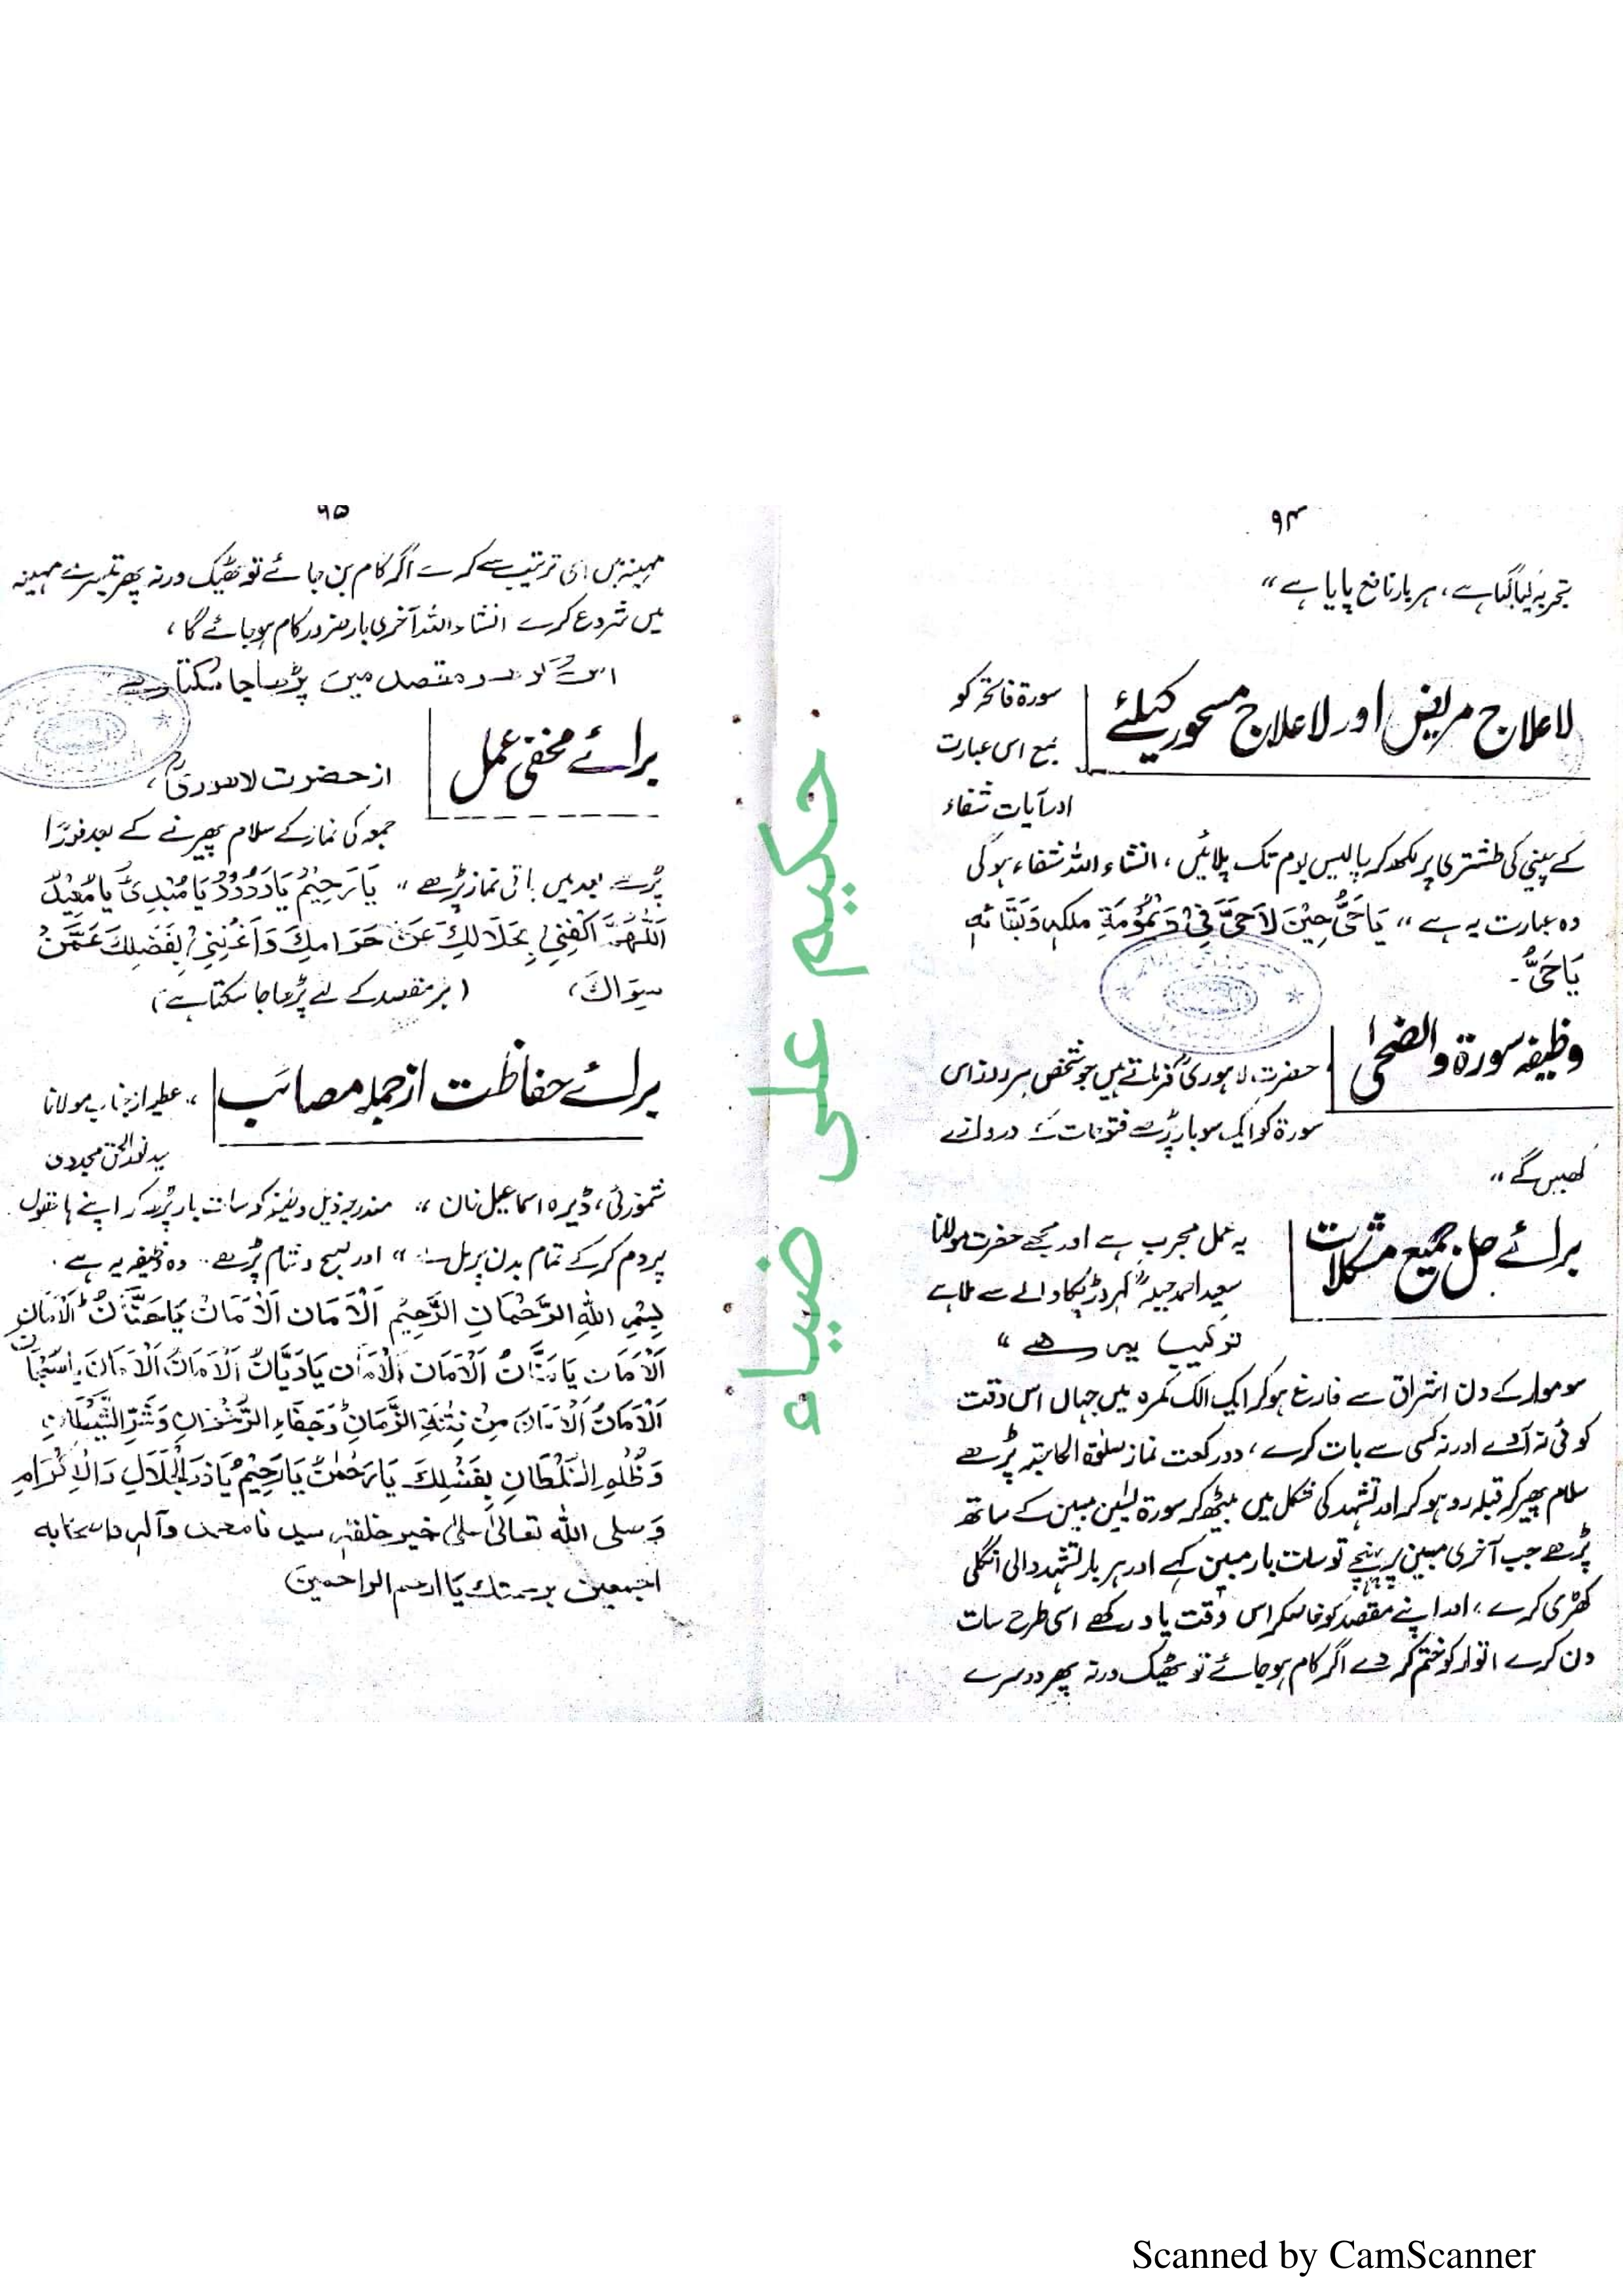 ۹۴
تجربہ کیا گیا ہے، ہر بار نافع پایا ہے “
لاعلاج مریض اور لاعلاج مسحور کیلئے
سورۃ فاتحہ کو
مع اس عبارت
اور آیات شفاء
کے چینی کی طشتری پر لکھ کر چالیس یوم تک پلائیں، انشاء اللہ شفاء ہوگی
وہ عبارت یہ ہے “ یَا حَیُّ حِیْنَ لَا حَیَّ فِیْ دَیْمُوْمَةِ ملکہٖ وَبَقَائہٖ
یَا حَیُّ۔
وظیفہ سورۃ والضحیٰ
حضرت لاہوریؒ فرماتے ہیں جو شخص ہر روز اس
سورۃ کو ایک سو بار پڑھے فتوحات کے دروازے
کھلیں گے “
برائے حل جمیع مشکلات
یہ عمل مجرب ہے اور مجھے حضرت مولانا
سعید احمد کہروڑ پکا والے سے ملا ہے
ترکیب یہ ہے “
سوموار کے دن اشراق سے فارغ ہو کر ایک الگ کمرہ میں جہاں اس وقت
کوئی نہ آئے اور نہ کسی سے بات کرے، دو رکعت نماز صلوٰۃ الحاجۃ پڑھے
سلام پھیر کر قبلہ رو ہو کر اور تشہد کی شکل میں بیٹھ کر سورۃ یٰسین مبین کے ساتھ
پڑھے جب آخری مبین پر پہنچے تو سات بار مبین کہے اور ہر بار تشہد والی انگلی
کھڑی کرے، اور اپنے مقصد کو خاصکر اس وقت یاد رکھے اسی طرح سات
دن کرے اتوار کو ختم کر دے اگر کام ہو جائے تو ٹھیک ورنہ پھر دوسرے
حکیم علی ضیاء
۹۵
مہینہ میں اسی ترتیب سے کرے اگر کام بن جائے تو ٹھیک ورنہ پھر تیسرے مہینہ
میں شروع کرے انشاء اللہ آخری بار ضرور کام ہو جائے گا،
مقصد میں پڑھا جا سکتا ہے
برائے مخفی عمل
از حضرت لاہوریؒ،
جمعہ کی نماز کے سلام پھیرنے کے بعد فورًا
پڑھے بعد میں باقی نماز پڑھے “ یَا رَحِیْمُ یَا وَدُوْدُ یَا مُبْدِیُٔ یَا مُعِیْدُ
اَللّٰهُمَّ اکْفِنِیْ بِحَلَالِكَ عَنْ حَرَامِكَ وَاَغْنِنِیْ بِفَضْلِكَ عَمَّنْ
سِوَاكَ، (ہر مقصد کے لئے پڑھا جا سکتا ہے)
برائے حفاظت از جملہ مصائب
“ عطیہ از جناب مولانا
مجددی
ڈیرہ اسماعیل خان “ مندرجہ ذیل وظیفہ کو سات بار پڑھ کر اپنے ہاتھوں
پر دم کر کے تمام بدن پر مل لے “ اور صبح و شام پڑھے۔ وہ وظیفہ یہ ہے۔
بِسْمِ اللهِ الرَّحْمَانِ الرَّحِیْمِ اَلْاَمَان اَلْاَمَانْ یَا حَنَّانُ اَلْاَمَان
اَلْاَمَان یَا مَنَّانُ اَلْاَمَان اَلْاَمَان یَا دَیَّانُ اَلْاَمَانْ اَلْاَمَانَ یَا سُبْحَانُ
اَلْاَمَانُ اَلْاَمَانَ مِنْ فِتْنَةِ الزَّمَانِ وَجَفَاءِ وَشَرِّ الشَّیْطَانِ
وَظُلْمِ السُّلْطَانِ بِفَضْلِكَ یَا رَحْمٰنُ یَا رَحِیْمُ یَا ذَوالْجَلَالِ وَالْاِکْرَامِ
وَصلی الله تعالیٰ علیٰ خیر خلقہٖ سیدنا محمد وآلہٖ واصحابہ
اجمعین برحمتك یَا ارحم الراحمین
Scanned by CamScanner